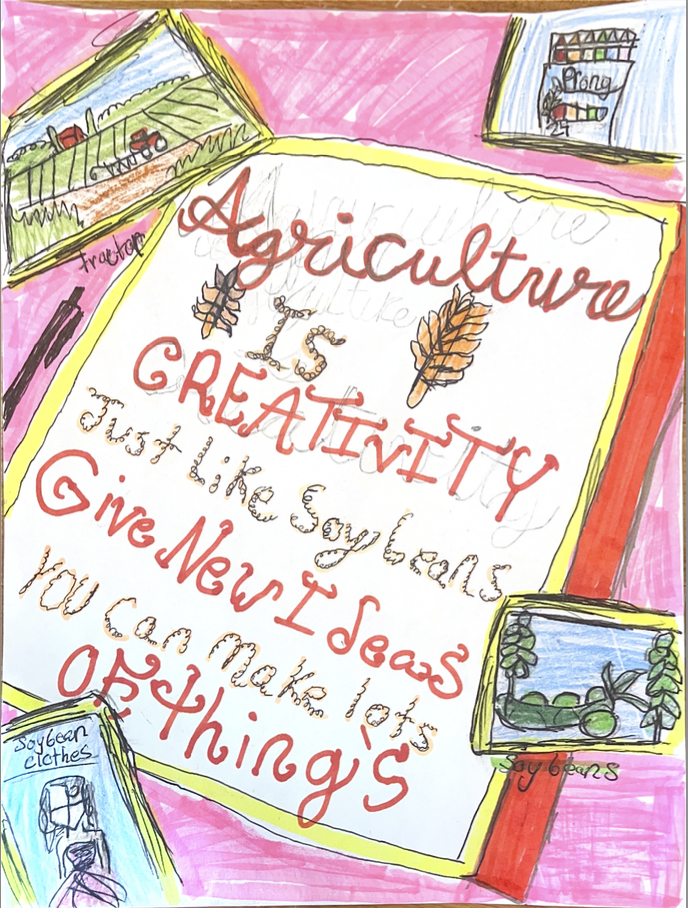 Prong
24
tractor
Agriculture
Is
CREATIVITY
Just Like Soy beans
Give New Ideas
YOU Can Make lots
OF thing's
Soy beans
Soybean
clothes